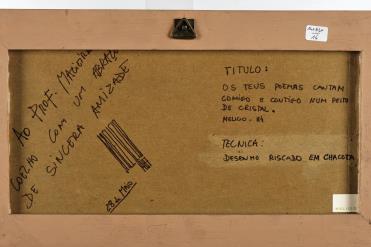 AO PROF. MAGIORINO
COELHO COM UM ABRAÇO
DE SINCERA AMIZADE
28 de MAIO
TITULO:
OS TEUS POEMAS CANTAM
COMIGO E CONTIGO NUM PEITO
DE CRISTAL.
MELICO - 84
TECNICA:
DESENHO RISCADO EM CHACOTA
16